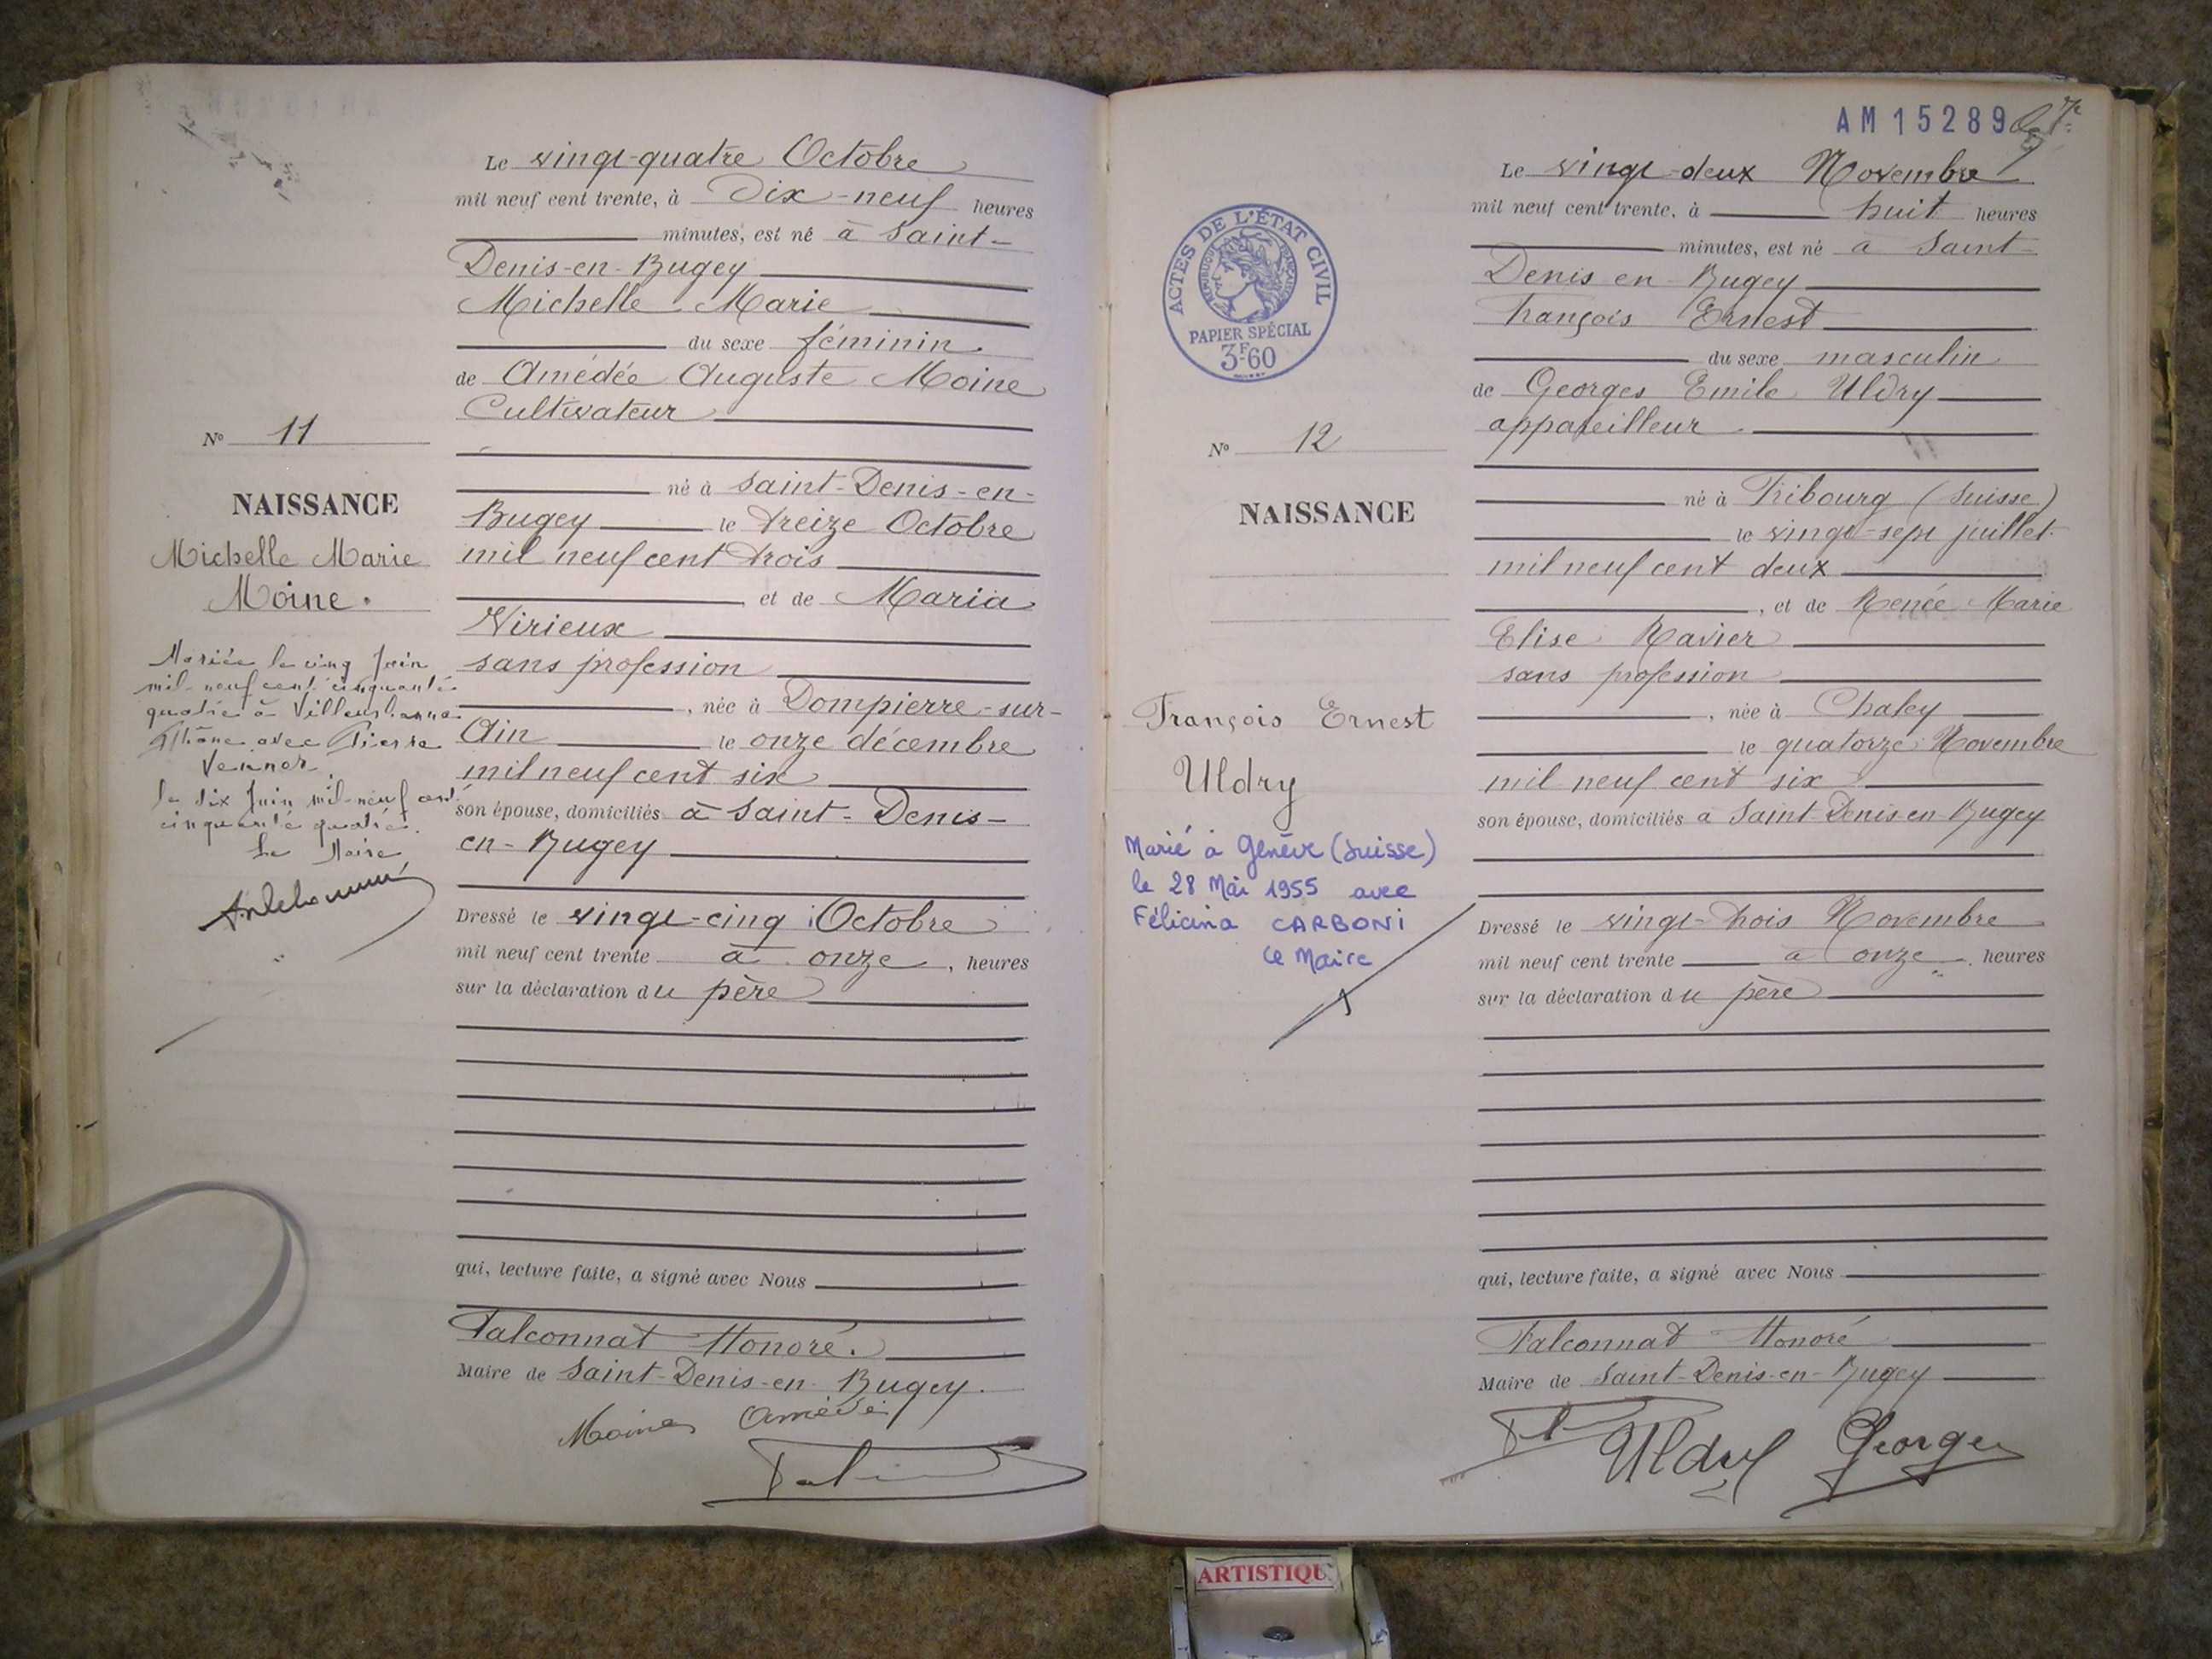 Le vingt-quatre Octobre
mil neuf cent trente, à Dix-neuf heures
minutes, est né à Saint-
Denis-en-Bugey
Michelle Marie
du sexe féminin
de Amédée Auguste Moine
Cultivateur
né à Saint-Denis-en-
Bugey le treize Octobre
mil neuf cent trois
et de Maria
Virieux
sans profession
, née à Dompierre-sur-
Ain le onze décembre
mil neuf cent six
son épouse, domiciliés à Saint-Denis-
en-Bugey
Dressé le vingt-cinq Octobre
mil neuf cent trente à onze, heures
sur la déclaration du père
qui, lecture faite, a signé avec Nous
Falconnat Honoré.
Maire de Saint-Denis-en-Bugey.
Moine Amédé
N° 11
NAISSANCE
Michelle Marie
Moine.
Mariée le cinq Juin
mil-neuf cent cinquante
quatre à Villeurbanne
Rhône avec Pierre
le dix Juin mil-neuf cent
cinquante quatre.
Le Maire
AM 15289
ACTES DE L'ÉTAT CIVIL
RÉPUBLIQUE FRANÇAISE
PAPIER SPÉCIAL
3F60
Le vingt-deux Novembre
mil neuf cent trente, à huit heures
minutes, est né à Saint-
Denis en Bugey
François Ernest
du sexe masculin
de Georges Emile Uldry
appareilleur
né à Fribourg (Suisse)
le vingt-sept juillet
mil neuf cent deux
, et de Renée Marie
Elise Ravier
sans profession
, née à Chaley
le quatorze Novembre
mil neuf cent six
son épouse, domiciliés à Saint-Denis-en-Bugey
Dressé le vingt-trois Novembre
mil neuf cent trente à onze heures
sur la déclaration du père
qui, lecture faite, a signé avec Nous
Falconnat Honoré
Maire de Saint-Denis-en-Bugey
Uldry Georges
N° 12
NAISSANCE
François Ernest
Uldry
Marié à Genève (Suisse)
le 28 Mai 1955 avec
Félicina CARBONI
Le Maire
ARTISTIQU